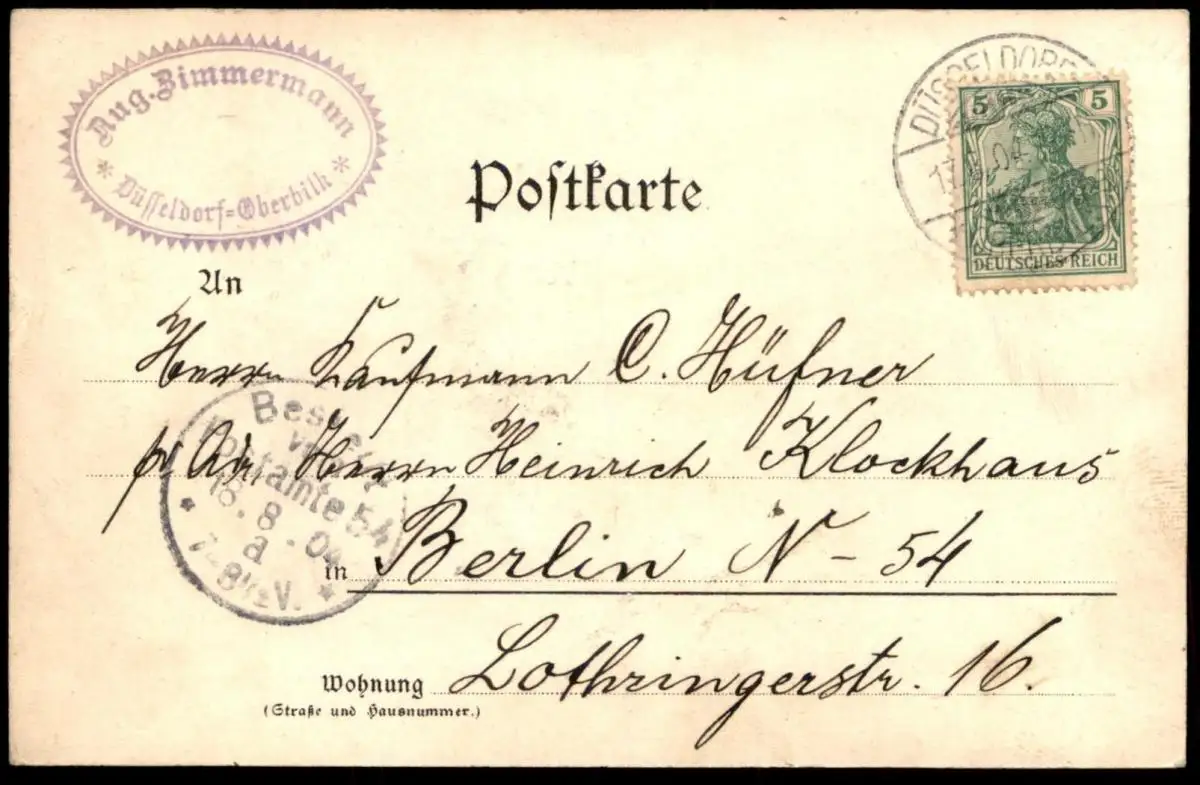 Aug. Zimmermann
* Düsseldorf=Oberbilk *
DÜSSELDORF
5 5
DEUTSCHES REICH
Postkarte
An
Herrn Kaufmann C. Hüfner
Herrn Heinrich Klockhaus
in Berlin N - 54
Wohnung Lothringerstr. 16.
(Straße und Hausnummer.)
Bestellt
vom
Postamte 54
18.8.04
a
7-8½V.